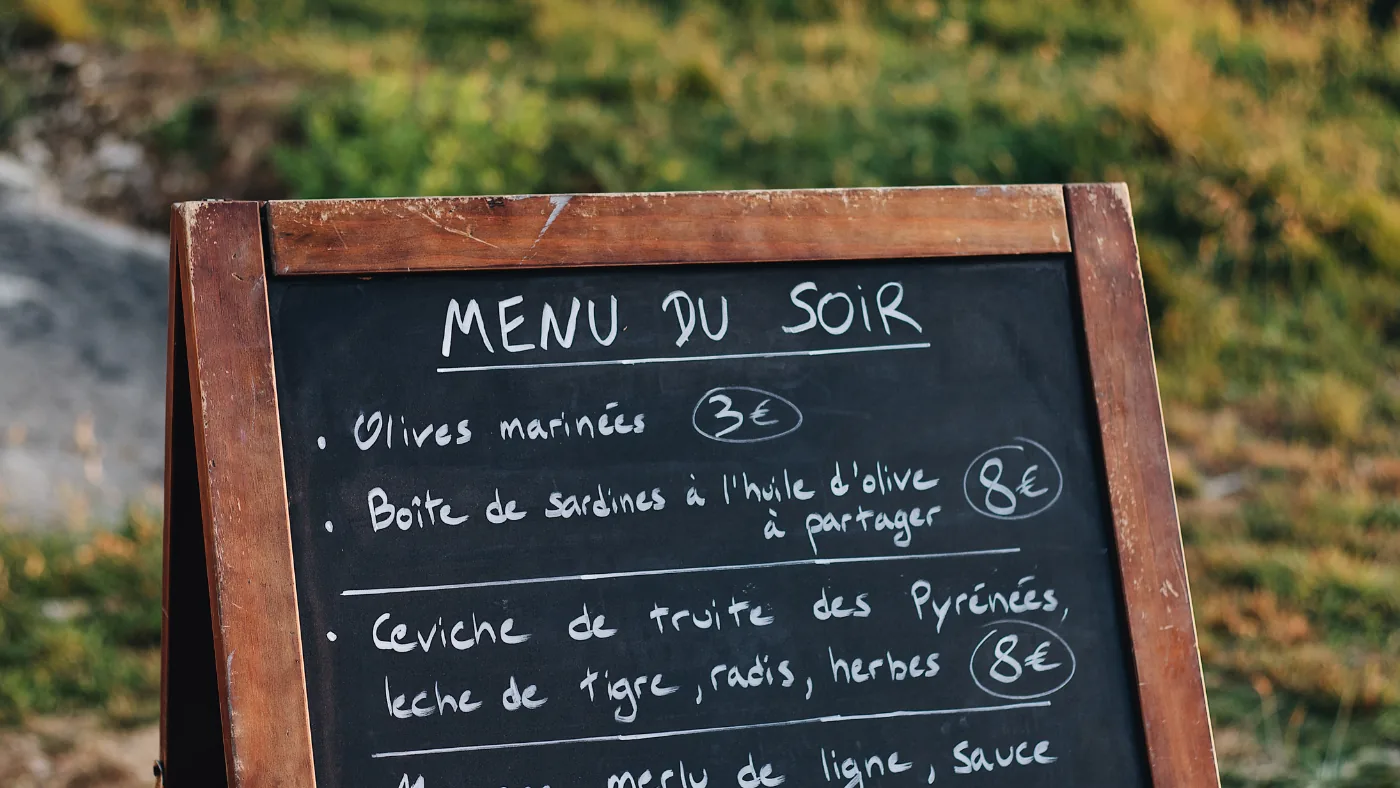 MENU DU SOIR
• Olives marinées 3€
• Boîte de sardines à l'huile d'olive 8€
à partager
• Ceviche de truite des Pyrénées,
leche de tigre, radis, herbes 8€
merlu de ligne, sauce